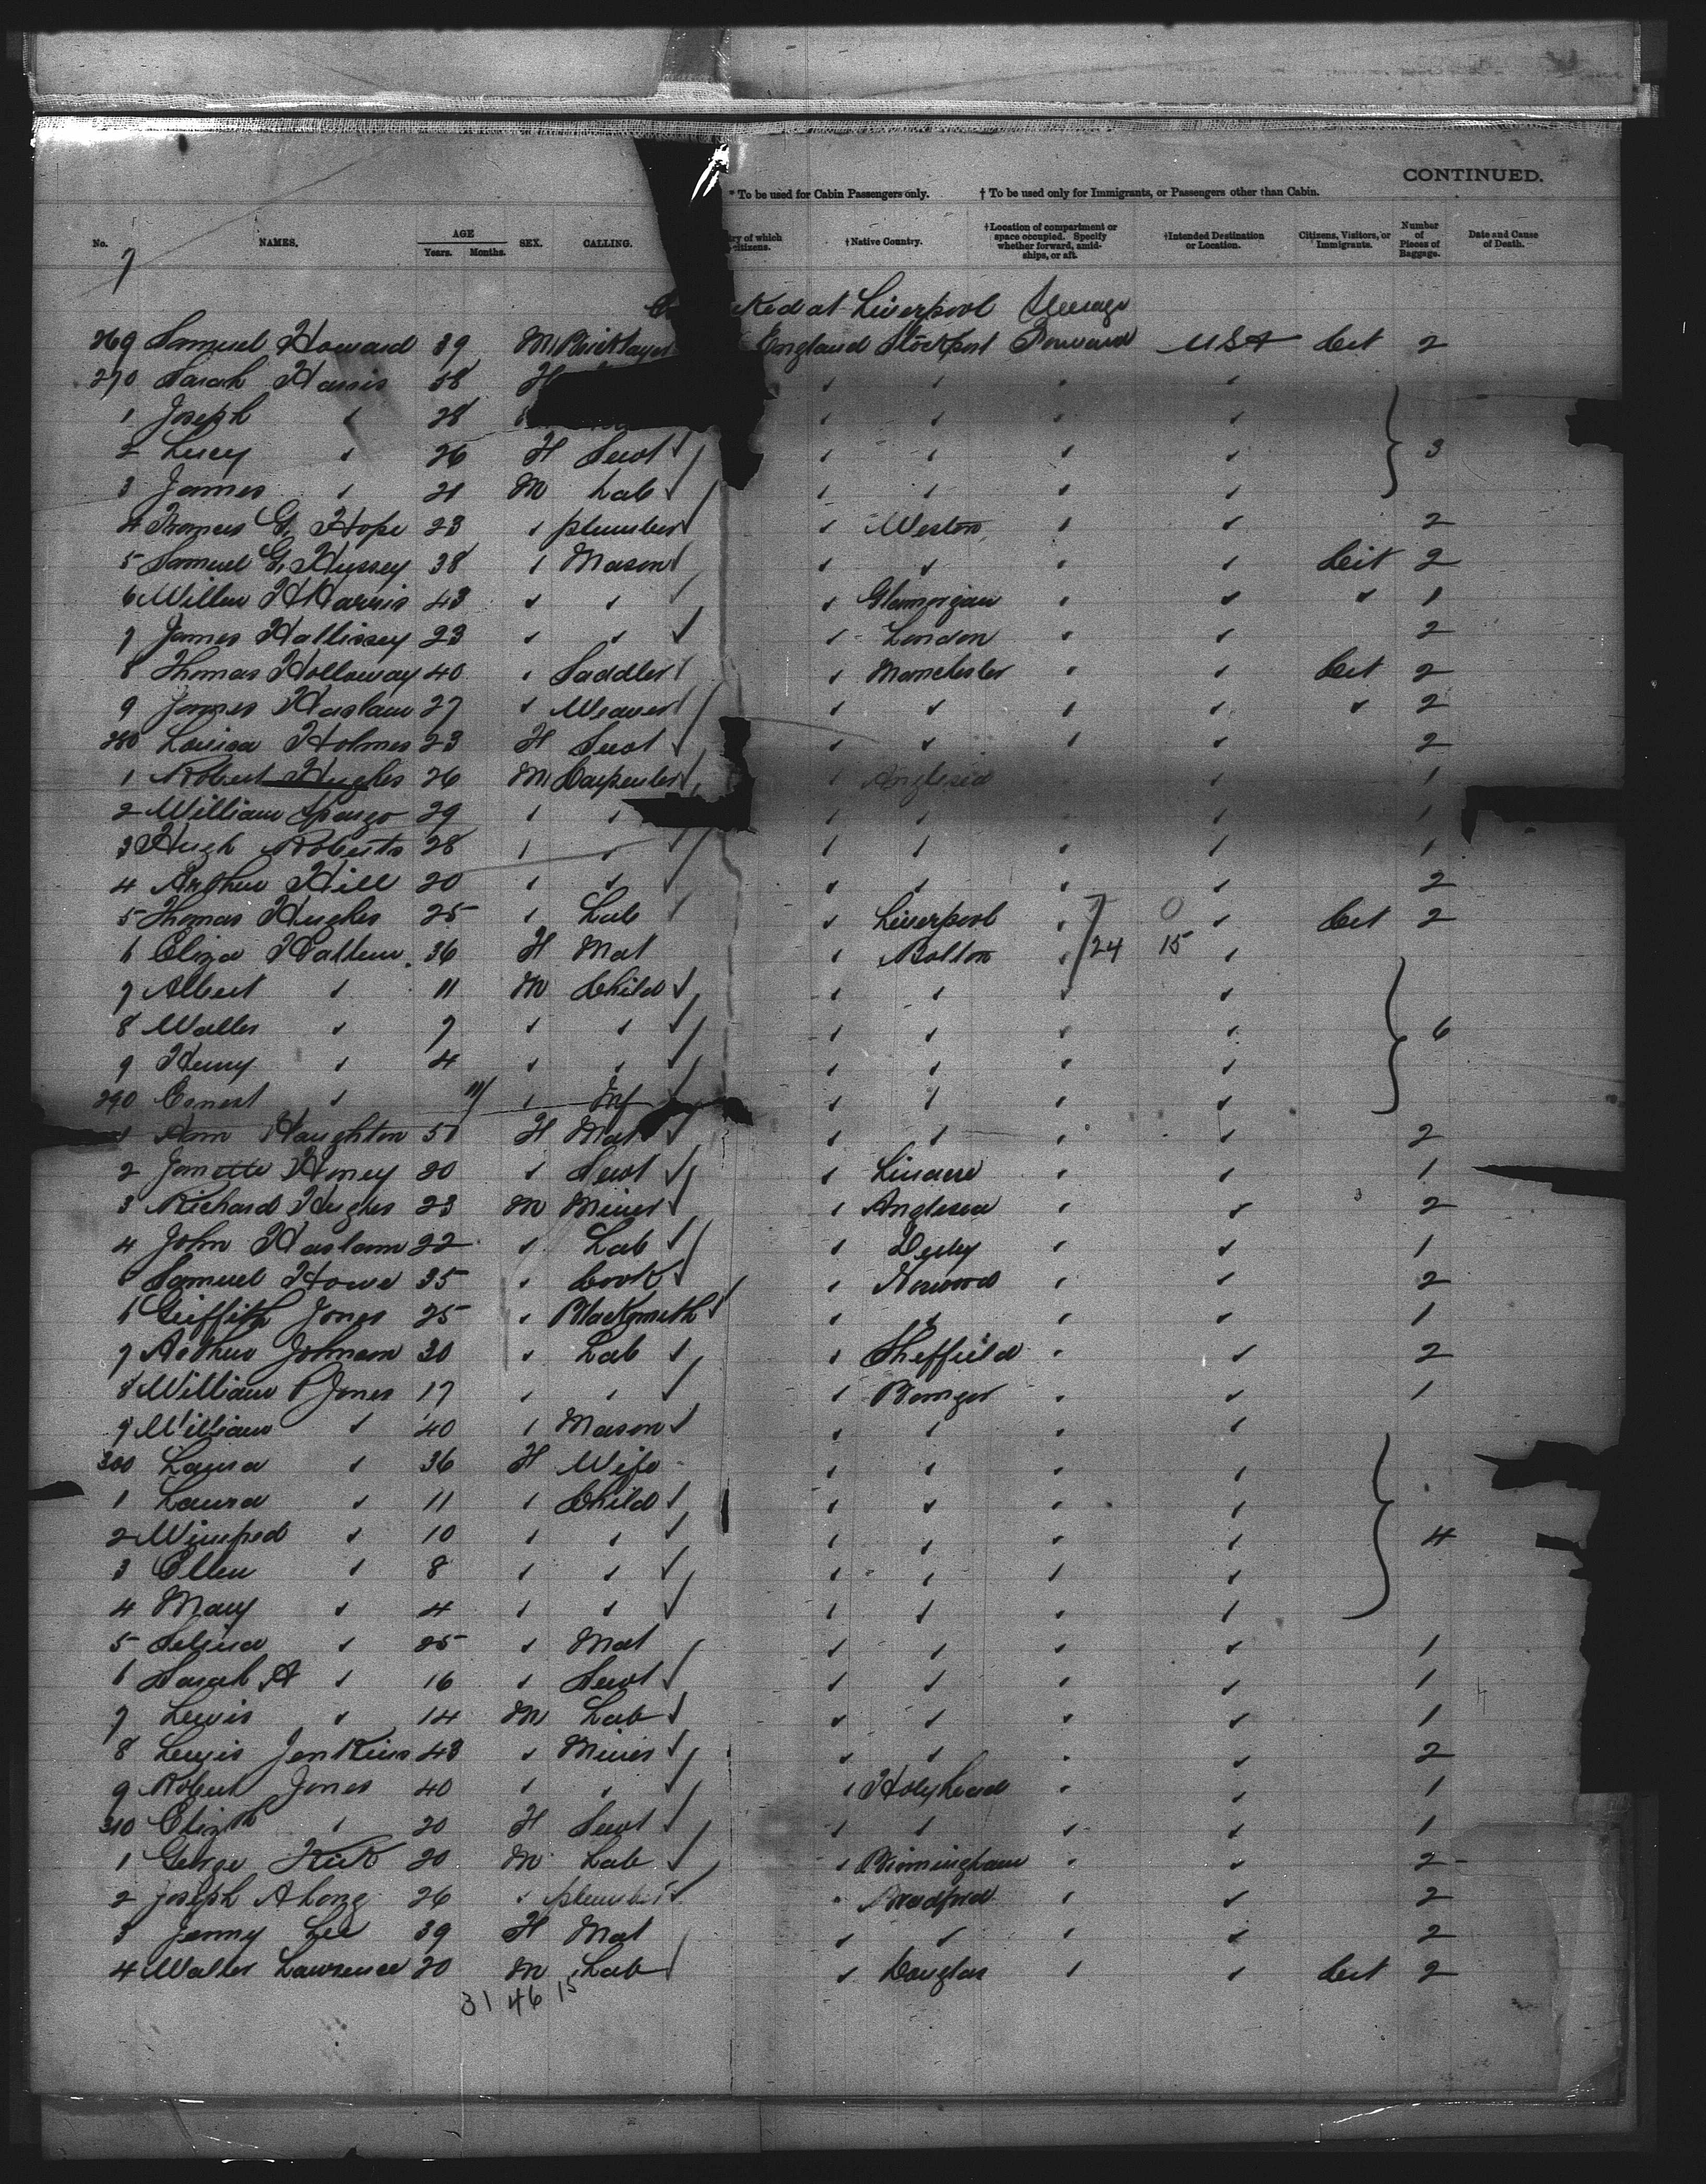 CONTINUED.
* To be used for Cabin Passengers only. † To be used only for Immigrants, or Passengers other than Cabin.
No. NAMES. AGE Years. Months. SEX. CALLING. try of which citizens. †Native Country. †Location of compartment or space occupied. Specify whether forward, amid-ships, or aft. †Intended Destination or Location. Citizens, Visitors, or Immigrants. Number of Pieces of Baggage. Date and Cause of Death.
7
ked at Liverpool Steerage
269 Samuel Howard 39 M Bricklayer England Stockport Forward USA Cit 2
270 Sarah Harris 58 F
1 Joseph " 28
2 Lucy " 26 F Servt " " " " 3
3 James " 21 M Lab " " " "
4 Thomas G. Hope 23 " plumber " Weston " " 2
5 Samuel G. Hussey 38 " Mason " " " " Cit 2
6 Willm H Harris 43 " " " Glamorgan " " " 1
7 James Hallissey 23 " " " London " " 2
8 Thomas Holloway 40 " Saddler " Manchester " " Cit 2
9 James Haslam 27 " Weaver " " " " " 2
280 Louisa Holmes 23 F Servt " " " " 2
1 Robert Hughes 26 M Carpenter " Anglesea " 1
2 William Spargo 29 " " " " " 1
3 Hugh Roberts 28 " " " " " " 1
4 Arthur Hill 20 " " " " " " 2
5 Thomas Hughes 25 " Lab " Liverpool " 0 " Cit 2
6 Eliza Hallum 36 F Mat " Bolton " 24 15 "
7 Albert " 11 M Child " " " "
8 Walter " 7 " " " " " " 6
9 Henry " 4 " " " " " "
290 Ernest " 11/ " Inf " " "
1 Ann Haughton 51 F Mat " " " " 2
2 Janette Honey 20 " Servt " Linacre " " 1
3 Richard Hughes 23 M Miner " Anglesea " " 2
4 John Haslam 22 " Lab " Derby " " 1
5 Samuel Howe 35 " Cook " Norwood " " 2
6 Griffith Jones 25 " Blacksmith " " " " 1
7 Arthur Johnson 30 " Lab " Sheffield " " 2
8 William P Jones 17 " " " Bangor " " 1
9 William " 40 " Mason " " " "
300 Laura " 36 F Wife " " " "
1 Laura " 11 " Child " " " "
2 Winifred " 10 " " " " " " 4
3 Ellen " 8 " " " " " "
4 Mary " 4 " " " " " "
5 Selina " 25 " Mat " " " " 1
6 Sarah A " 16 " Servt " " " " 1
7 Lewis " 14 M Lab " " " " 1
8 Lewis Jenkins 43 " Miner " " " " 2
9 Robert Jones 40 " " " Holyhead " " 1
310 Elizth " 20 F Servt " " " " 1
1 George Kirk 20 M Lab " Birmingham " " 2
2 Joseph A Long 26 " plumber " Bradford " " 2
3 Jenny Lee 39 F Mat " " " " 2
4 Walter Lawrence 20 M Lab " Douglas " " Cit 2
31 46 15